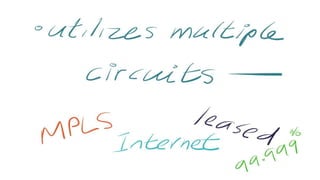 • utilizes multiple
circuits —
MPLS
Internet
leased
99.999%